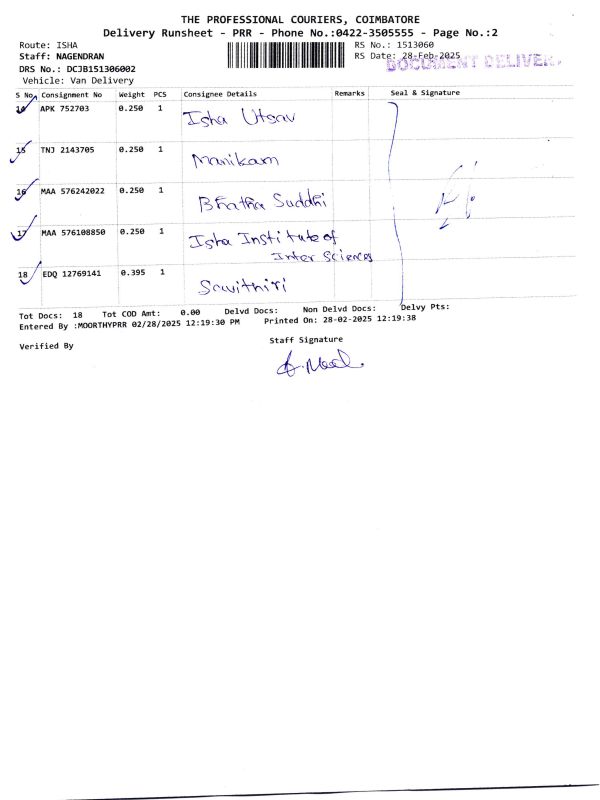 THE PROFESSIONAL COURIERS, COIMBATORE
Delivery Runsheet - PRR - Phone No.:0422-3505555 - Page No.:2
Route: ISHA RS No.: 1513060
Staff: NAGENDRAN RS Date: 28-Feb-2025
DOCUMENT DELIVERY
DRS No.: DCJB151306002
Vehicle: Van Delivery
S No Consignment No Weight PCS Consignee Details Remarks Seal & Signature
14 APK 752703 0.250 1 Isha Utsav
15 TNJ 2143705 0.250 1 Manikam
16 MAA 576242022 0.250 1 Bhatha Suddhi
17 MAA 576108850 0.250 1 Isha Institute of
Inter Sciences
18 EDQ 12769141 0.395 1 Savithiri
Tot Docs: 18 Tot COD Amt: 0.00 Delvd Docs: Non Delvd Docs: Delvy Pts:
Entered By :MOORTHYPRR 02/28/2025 12:19:30 PM Printed On: 28-02-2025 12:19:38
Verified By Staff Signature